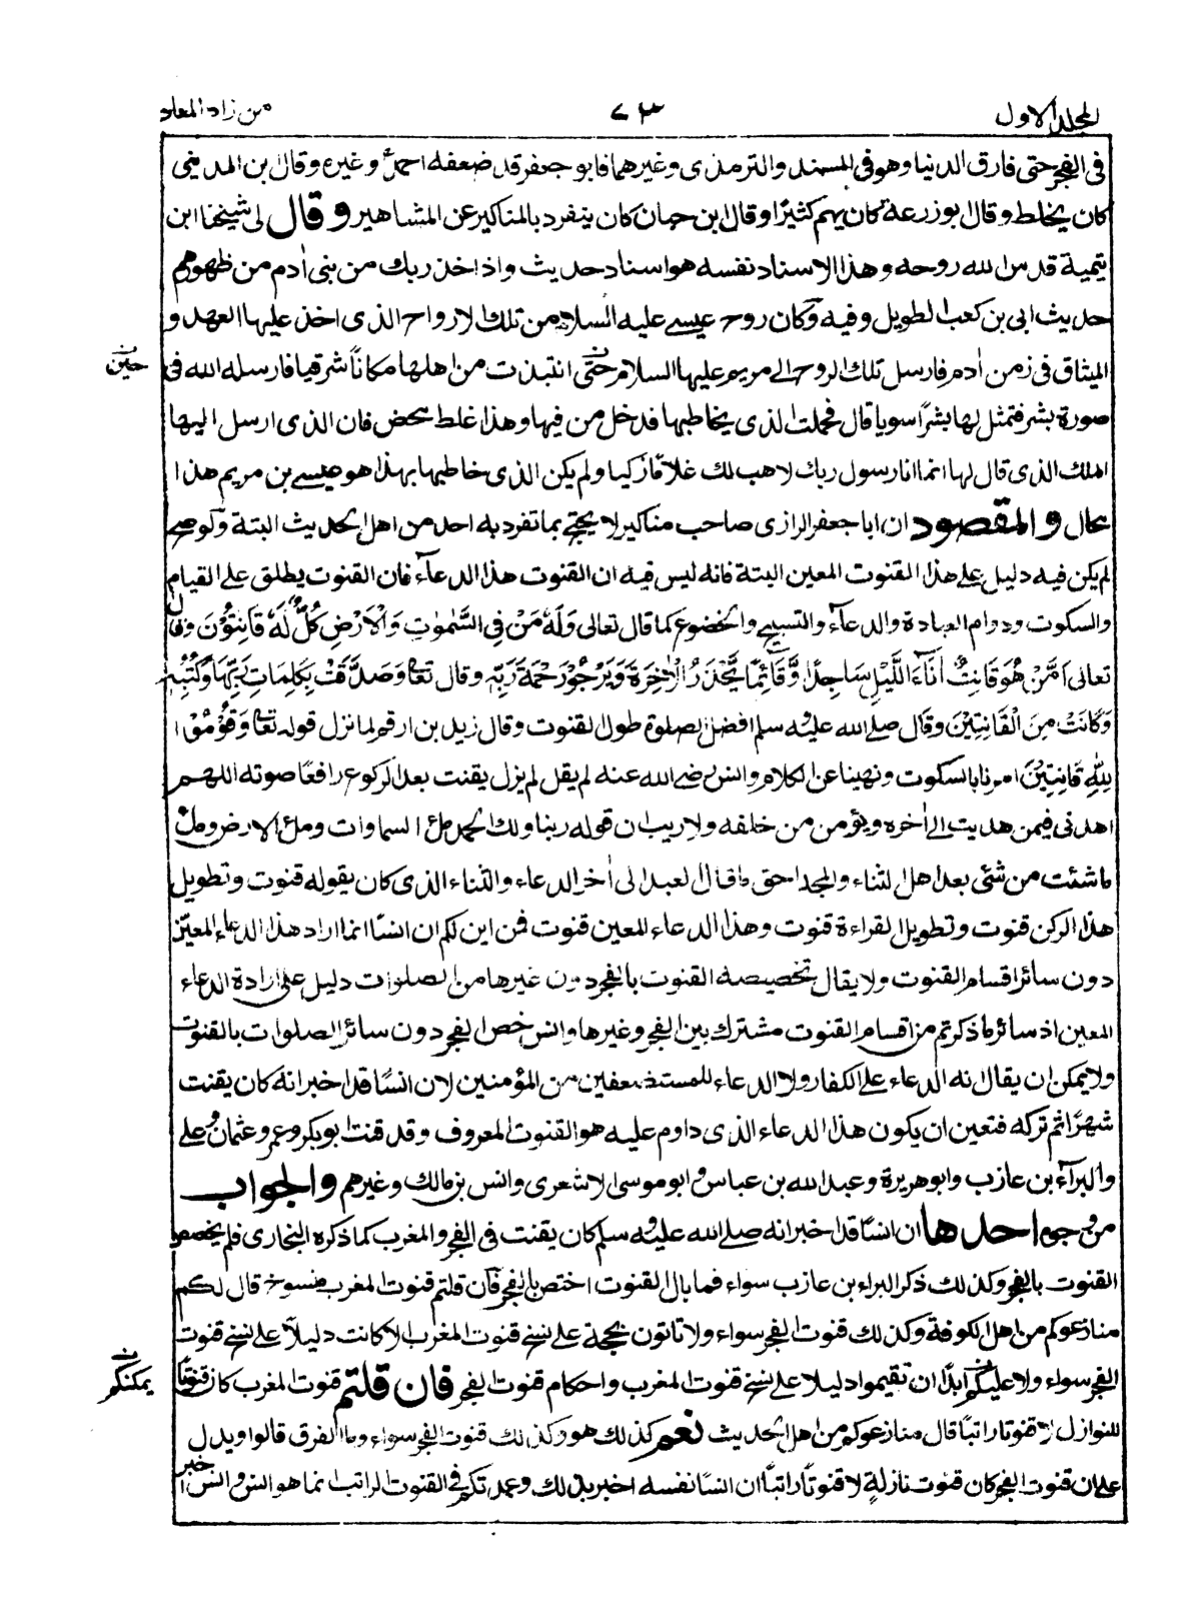 المجلد الاول
٧٣
من زاد المعاد
فى الفجر حتى فارق الدنيا وهو فى المسند والترمذى وغيرهما فابو جعفر قد ضعفه احمد وغيره وقال بن المدينى
كان يخلط وقال ابو زرعة كان يهم كثيرًا وقال ابن حبان كان ينفرد بالمناكير عن المشاهير وقال لى شيخنا ابن
تيمية قدس الله روحه وهذا الاسناد نفسه هو اسناد حديث واذ اخذ ربك من بنى اٰدم من ظهورهم
حديث ابى بن كعب الطويل وفيه وكان روح عيسے عليه السلام من تلك الارواح الذى اخذ عليها العهد و
الميثاق فى زمن اٰدم فارسل تلك الروح الے مريم عليها السلام حتى انتبذت من اهلها مكانًا شرقيا فارسله الله فى
حين
صورة بشر فتمثل لها بشرًا سويا قال فحملت الذى يخاطبها فدخل من فيها وهذا غلط محض فان الذى ارسل اليها
الملك الذى قال لها انما انا رسول ربك لاهب لك غلامًا زكيا ولم يكن الذى خاطبها بهذا هو عيسے بن مريم هذا
محال والمقصود ان ابا جعفر الرازى صاحب مناكير لا يحتج بما تفرد به احد من اهل الحديث البتة ولو صح
لم يكن فيه دليل علے هذا القنوت المعين البتة فانه ليس فيه ان القنوت هذا الدعاء فان القنوت يطلق علے القيام
والسكوت ودوام العبادة والدعاء والتسبيح والخضوع كما قال تعالى وَلَهٗ مَنْ فِى السَّمٰوٰتِ وَالْاَرْضِ كُلٌّ لَّهٗ قَانِتُوْنَ وقال
تعالى اَمَّنْ هُوَ قَانِتٌ اٰنَاءَ اللَّيْلِ سَاجِدًا وَّقَائِمًا يَّحْذَرُ الْاٰخِرَةَ وَيَرْجُوْ رَحْمَةَ رَبِّهٖ وقال تعا وَصَدَّقَتْ بِكَلِمَاتِ رَبِّهَا وَكُتُبِهٖ
وَكَانَتْ مِنَ الْقَانِتِيْنَ وقال صلے الله عليه وسلم افضل الصلوة طول القنوت وقال زيد بن ارقم لما نزل قوله تعا وَقُوْمُوْا
لِلّٰهِ قَانِتِيْنَ امرنا بالسكوت ونهينا عن الكلام وانس رضے الله عنه لم يقل لم يزل يقنت بعد الركوع رافعًا صوته اللهم
اهدنى فيمن هديت الے اٰخره ويؤمن من خلفه ولا ريب ان قوله ربنا ولك الحمد ملء السماوات وملء الارض وملء
ما شئت من شئ بعد اهل الثناء والمجد احق ما قال العبد الى اٰخر الدعاء والثناء الذى كان يقوله قنوت وتطويل
هذا الركن قنوت وتطويل القراءة قنوت وهذا الدعاء المعين قنوت فمن اين لكم ان انسًا انما اراد هذا الدعاء المعين
دون سائر اقسام القنوت ولا يقال تخصيصه القنوت بالفجر دون غيرها من الصلوات دليل على ارادة الدعاء
المعين اذ سائر ما ذكرتم من اقسام القنوت مشترك بين الفجر وغيرها وانس خص الفجر دون سائر الصلوات بالقنوت
ولا يمكن ان يقال انه الدعاء علے الكفار ولا الدعاء للمستضعفين من المؤمنين لان انسًا قد اخبر انه كان يقنت
شهرًا ثم تركه فتعين ان يكون هذا الدعاء الذى داوم عليه هو القنوت المعروف وقد قنت ابو بكر وعمر وعثمان وعلے
والبراء بن عازب وابو هريرة وعبد الله بن عباس وابو موسى الاشعرى وانس بن مالك وغيرهم والجواب
من وجوه احدها ان انسًا قد اخبر انه صلے الله عليه وسلم كان يقنت فى الفجر والمغرب كما ذكره البخارى فلم يخصص
القنوت بالفجر وكذلك ذكر البراء بن عازب سواء فما بال القنوت اختص بالفجر فان قلتم قنوت المغرب منسوخ قال لكم
منازعوكم من اهل الكوفة وكذلك قنوت الفجر سواء ولا تاتون بحجة علے نسخ قنوت المغرب الا كانت دليلًا علے نسخ قنوت
الفجر سواء ولا عليكم ابدًا ان تقيموا دليلا علے نسخ قنوت المغرب واحكام قنوت الفجر فان قلتم قنوت المغرب كان قنوتًا
يمكنكم
للنوازل لا قنوتا راتبًا قال منازعوكم من اهل الحديث نعم كذلك هو وكذلك قنوت الفجر سواء وما الفرق قالوا ويدل
علے ان قنوت الفجر كان قنوت نازلةٍ لا قنوتًا راتبًا ان انسًا نفسه اخبر بذلك وعمدتكم فى القنوت الراتب انما هو انس وانس اخبر